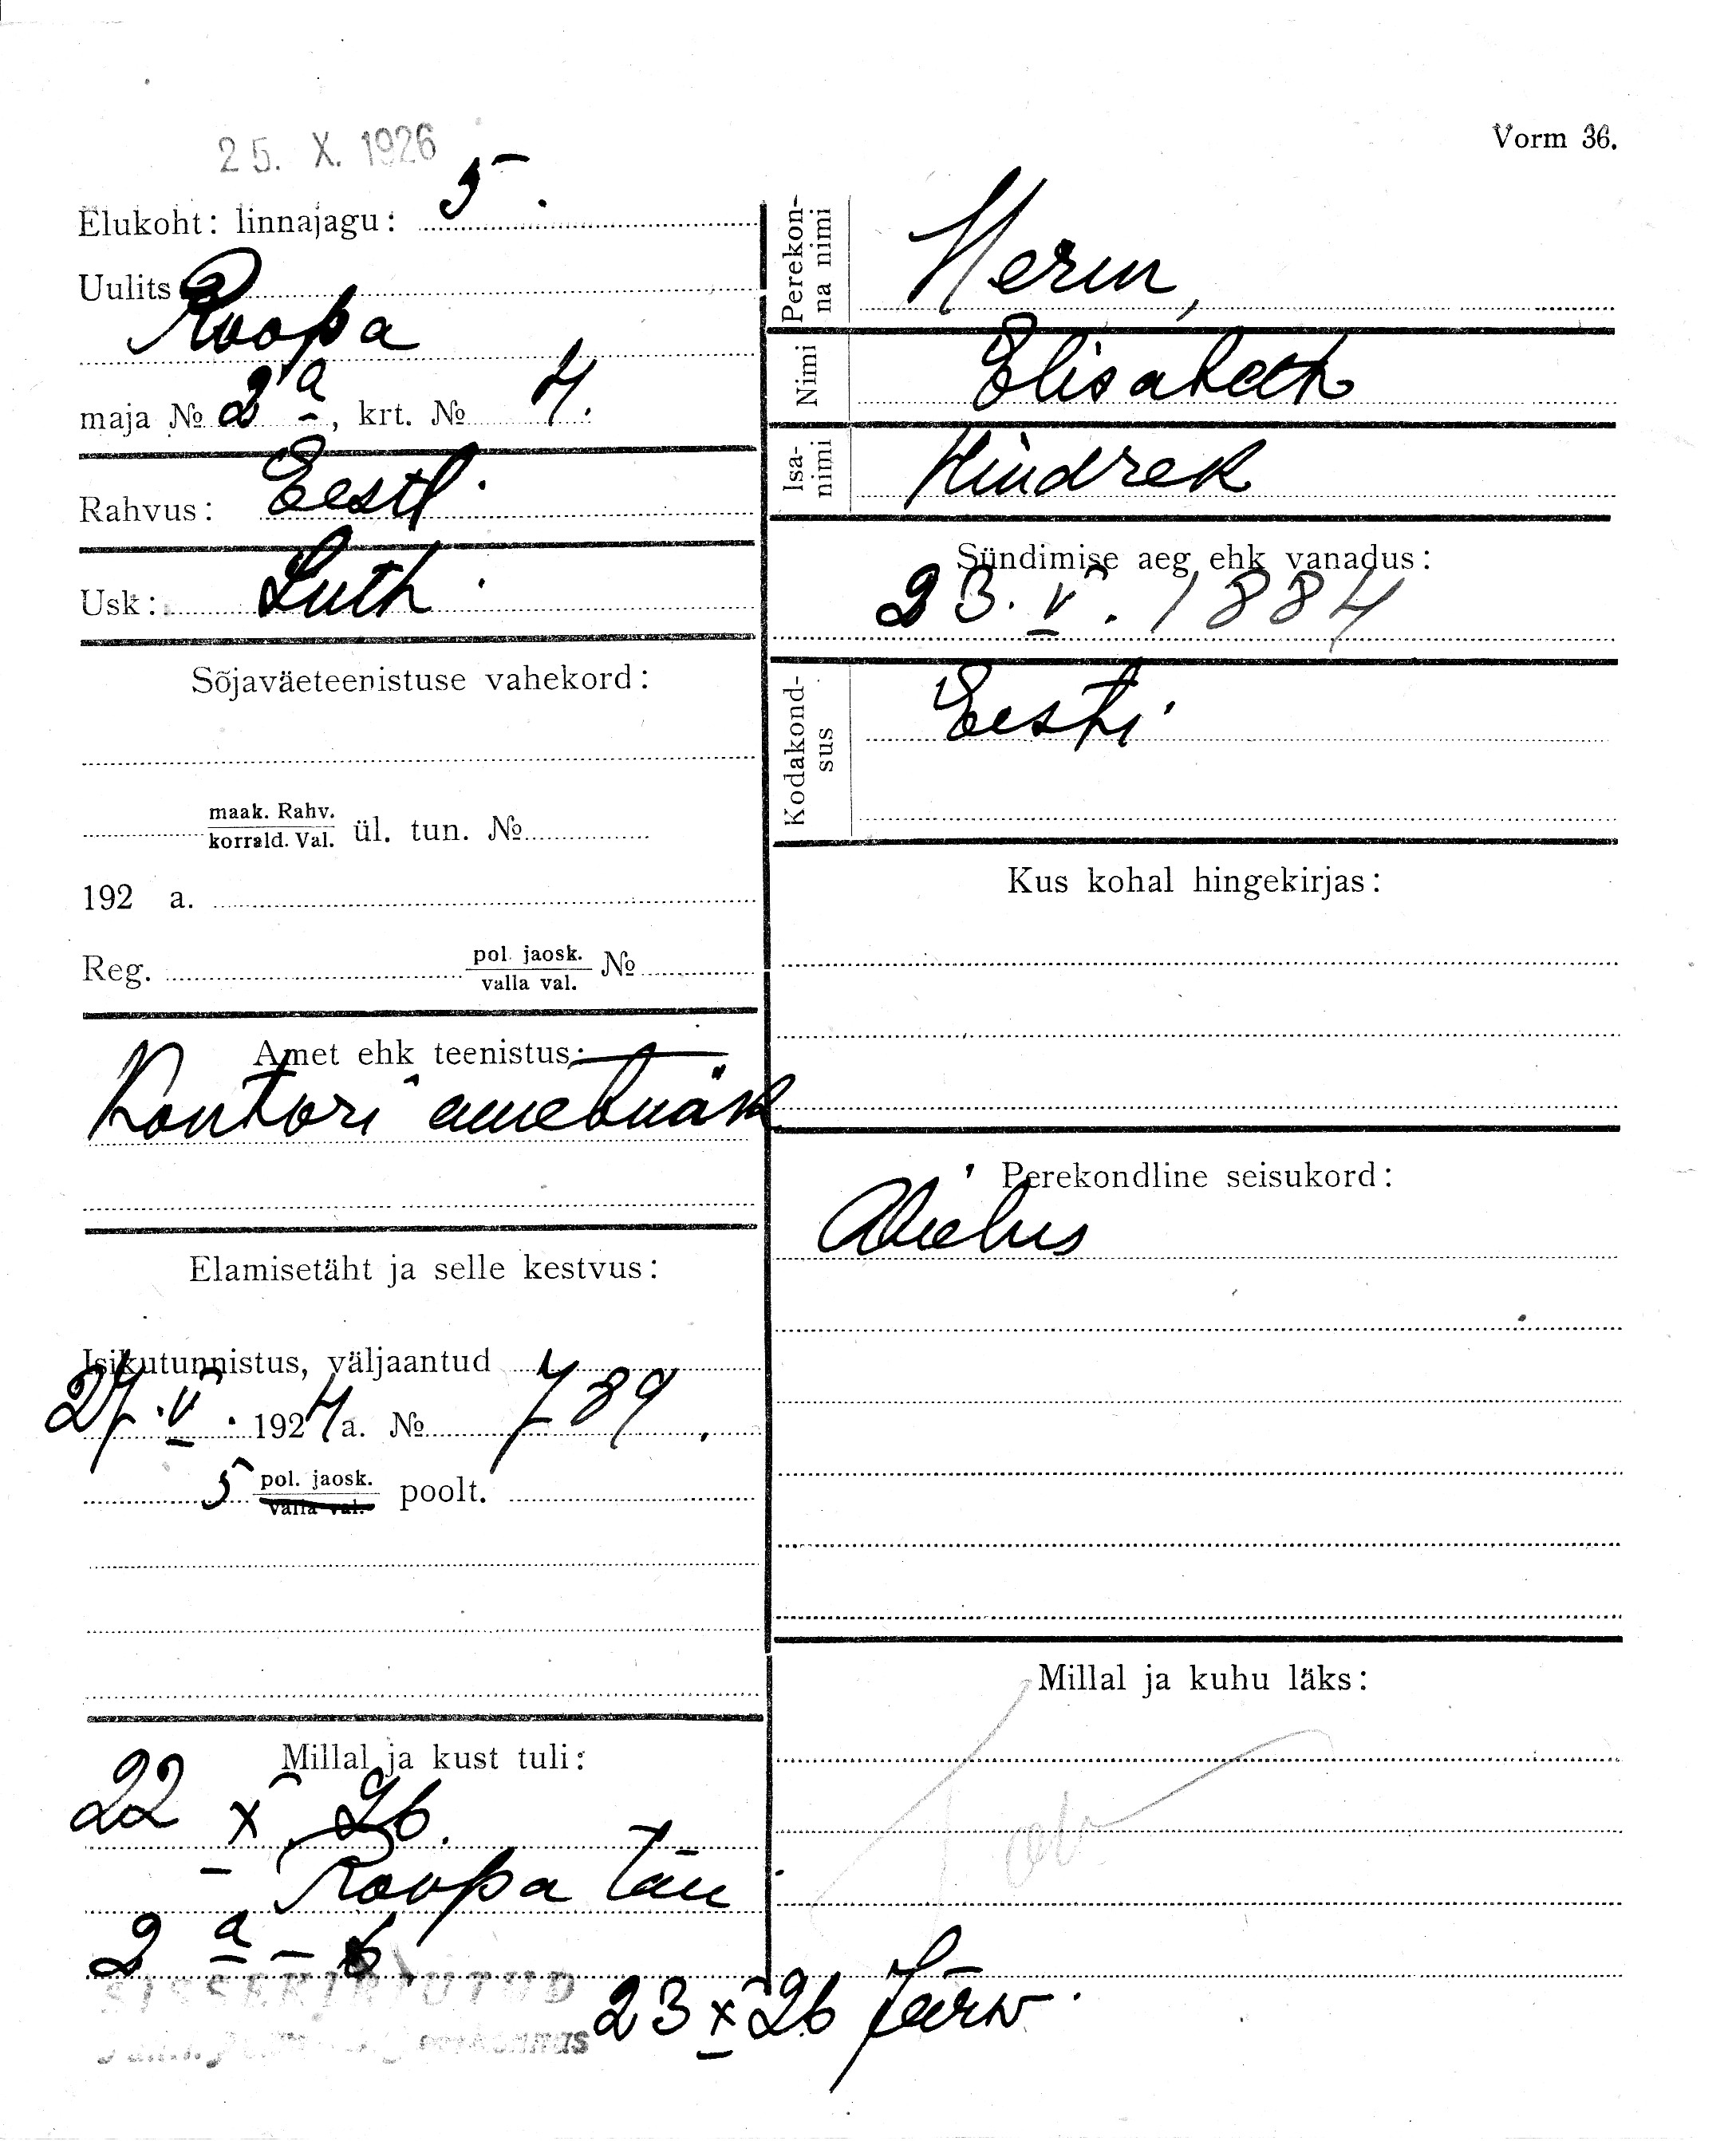 25. X. 1926
Vorm 36.
Elukoht: linnajagu: 5.
Uulits
Roopa
maja № 2 a, krt. № 4.
Rahvus: Eesti.
Usk: Luth.
Sõjaväeteenistuse vahekord:
maak. Rahv.
korrald. Val. ül. tun. №
192 a.
Reg. pol. jaosk.
valla val. №
Amet ehk teenistus:
Kontori ametnik
Elamisetäht ja selle kestvus:
Isikutunnistus, väljaantud
27. V. 1924 a. № 789.
5 pol. jaosk.
valla val. poolt.
Millal ja kust tuli:
22 X 26.
Roopa tän
2 a -
SISSEKIRJUTUD
Perekonna nimi
Nimi Elisabeth
Isanimi Hindrek
Sündimise aeg ehk vanadus:
23. V. 1884
Kodakondsus Eesti
Kus kohal hingekirjas:
Perekondline seisukord:
Abielus
Millal ja kuhu läks:
23 X 26 Järw.